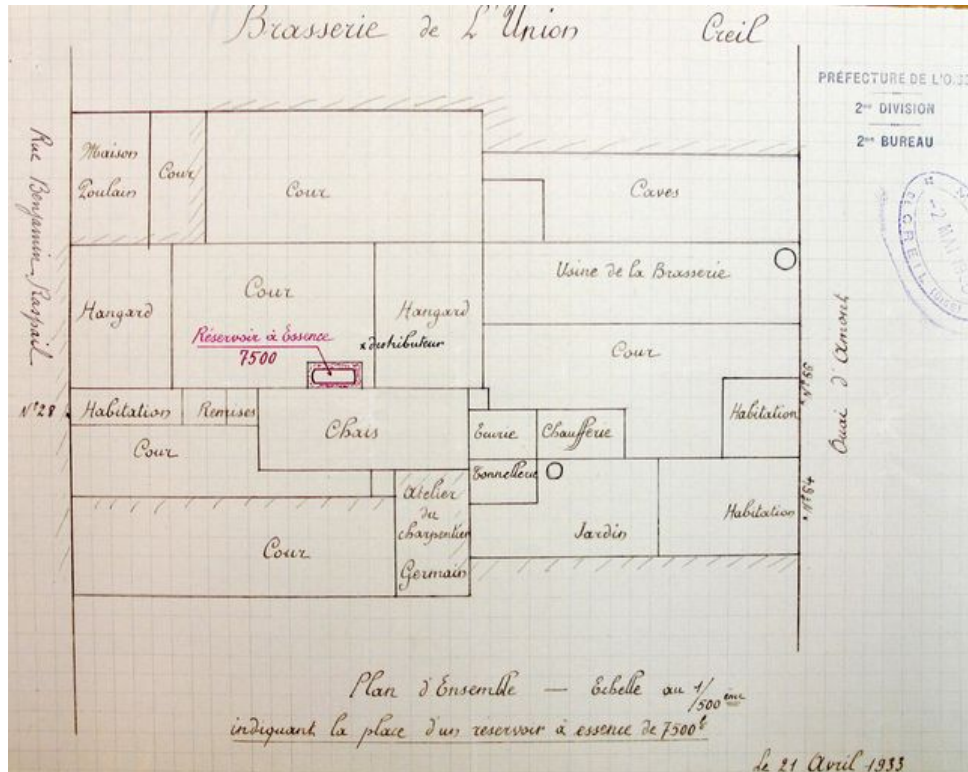 Brasserie de L'Union Creil
PRÉFECTURE DE L'O
2me DIVISION
2me BUREAU
Rue Benjamin Raspail
Maison
Poulain
Cour
Cour
Caves
Usine de la Brasserie
Hangard
Cour
Hangard
Réservoir à Essence
7500
x distributeur
Cour
Quai d'Amont
N° 66
N° 28
Habitation
Remises
Chais
Ecurie
Chaufferie
Habitation
Cour
Tonnellerie
Atelier
du
charpentier
Germain
Jardin
Habitation
N° 64
Cour
CREIL
Plan d'Ensemble — Echelle au 1/500 ème
indiquant la place d'un réservoir à essence de 7500 l
le 21 Avril 1933